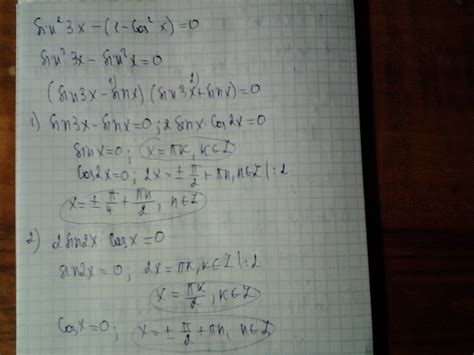 sin²3x-(1-cos²x)=0
sin²3x-sin²x=0
1) 2)
(sin3x-sinx)(sin3x+sinx)=0
1) sin3x-sinx=0; 2sinx·cos2x=0
sinx=0; x=πk, k∈Z
cos2x=0; 2x=±π/2+πn, n∈Z |:2
x=±π/4+πn/2, n∈Z
2) 2sin2x·cosx=0
sin2x=0; 2x=πk, k∈Z |:2
x=πk/2, k∈Z
cosx=0; x=±π/2+πn, n∈Z